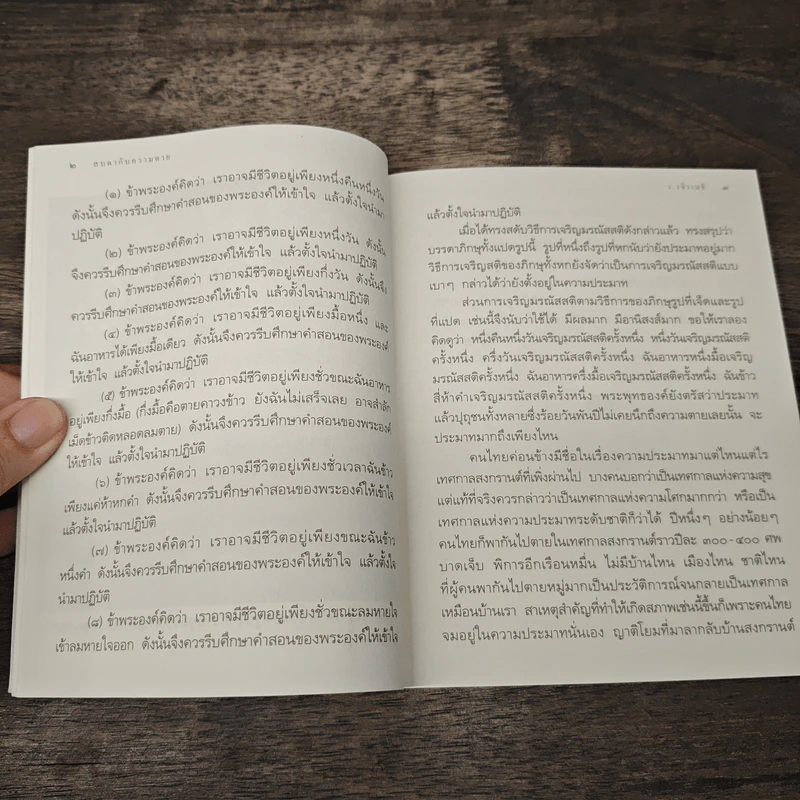 ๒ สบตากับความตาย
(๑) ข้าพระองค์คิดว่า เราอาจมีชีวิตอยู่เพียงหนึ่งคืนหนึ่งวัน
ดังนั้นจึงควรรีบศึกษาคำสอนของพระองค์ให้เข้าใจ แล้วตั้งใจนำมา
ปฏิบัติ
(๒) ข้าพระองค์คิดว่า เราอาจมีชีวิตอยู่เพียงหนึ่งวัน ดังนั้น
จึงควรรีบศึกษาคำสอนของพระองค์ให้เข้าใจ แล้วตั้งใจนำมาปฏิบัติ
(๓) ข้าพระองค์คิดว่า เราอาจมีชีวิตอยู่เพียงกึ่งวัน ดังนั้นจึง
ควรรีบศึกษาคำสอนของพระองค์ให้เข้าใจ แล้วตั้งใจนำมาปฏิบัติ
(๔) ข้าพระองค์คิดว่า เราอาจมีชีวิตอยู่เพียงมื้อหนึ่ง และ
ฉันอาหารได้เพียงมื้อเดียว ดังนั้นจึงควรรีบศึกษาคำสอนของพระองค์
ให้เข้าใจ แล้วตั้งใจนำมาปฏิบัติ
(๕) ข้าพระองค์คิดว่า เราอาจมีชีวิตอยู่เพียงชั่วขณะฉันอาหาร
อยู่เพียงกึ่งมื้อ (กึ่งมื้อคือตายคาวงข้าว ยังฉันไม่เสร็จเลย อาจสำลัก
เม็ดข้าวติดหลอดลมตาย) ดังนั้นจึงควรรีบศึกษาคำสอนของพระองค์
ให้เข้าใจ แล้วตั้งใจนำมาปฏิบัติ
(๖) ข้าพระองค์คิดว่า เราอาจมีชีวิตอยู่เพียงชั่วเวลาฉันข้าว
เพียงแค่ห้าหกคำ ดังนั้นจึงควรรีบศึกษาคำสอนของพระองค์ให้เข้าใจ
แล้วตั้งใจนำมาปฏิบัติ
(๗) ข้าพระองค์คิดว่า เราอาจมีชีวิตอยู่เพียงขณะฉันข้าว
หนึ่งคำ ดังนั้นจึงควรรีบศึกษาคำสอนของพระองค์ให้เข้าใจ แล้วตั้งใจ
นำมาปฏิบัติ
(๘) ข้าพระองค์คิดว่า เราอาจมีชีวิตอยู่เพียงชั่วขณะลมหายใจ
เข้าลมหายใจออก ดังนั้นจึงควรรีบศึกษาคำสอนของพระองค์ให้เข้าใจ
ว.วชิรเมธี ๓
แล้วตั้งใจนำมาปฏิบัติ
เมื่อได้ทรงสดับวิธีการเจริญมรณัสสติดังกล่าวแล้ว ทรงสรุปว่า
บรรดาภิกษุทั้งแปดรูปนี้ รูปที่หนึ่งถึงรูปที่หกนับว่ายังประมาทอยู่มาก
วิธีการเจริญสติของภิกษุทั้งหกยังจัดว่าเป็นการเจริญมรณัสสติแบบ
เบาๆ กล่าวได้ว่ายังตั้งอยู่ในความประมาท
ส่วนการเจริญมรณัสสติตามวิธีการของภิกษุรูปที่เจ็ดและรูป
ที่แปด เช่นนี้จึงนับว่าใช้ได้ มีผลมาก มีอานิสงส์มาก ขอให้เราลอง
คิดดูว่า หนึ่งคืนหนึ่งวันเจริญมรณัสสติครั้งหนึ่ง หนึ่งวันเจริญมรณัสสติ
ครั้งหนึ่ง ครึ่งวันเจริญมรณัสสติครั้งหนึ่ง ฉันอาหารหนึ่งมื้อเจริญ
มรณัสสติครั้งหนึ่ง ฉันอาหารครึ่งมื้อเจริญมรณัสสติครั้งหนึ่ง ฉันข้าว
สี่ห้าคำเจริญมรณัสสติครั้งหนึ่ง พระพุทธองค์ยังตรัสว่าประมาท
แล้วปุถุชนทั้งหลายซึ่งร้อยวันพันปีไม่เคยนึกถึงความตายเลยนั้น จะ
ประมาทมากถึงเพียงไหน
คนไทยค่อนข้างมีชื่อในเรื่องความประมาทมาแต่ไหนแต่ไร
เทศกาลสงกรานต์ที่เพิ่งผ่านไป บางคนบอกว่าเป็นเทศกาลแห่งความสุข
แต่แท้ที่จริงควรกล่าวว่าเป็นเทศกาลแห่งความโศกมากกว่า หรือเป็น
เทศกาลแห่งความประมาทระดับชาติก็ว่าได้ ปีหนึ่งๆ อย่างน้อยๆ
คนไทยก็พากันไปตายในเทศกาลสงกรานต์ราวปีละ ๓๐๐-๔๐๐ ศพ
บาดเจ็บ พิการอีกเรือนหมื่น ไม่มีบ้านไหน เมืองไหน ชาติไหน
ที่ผู้คนพากันไปตายหมู่มากเป็นประวัติการณ์จนกลายเป็นเทศกาล
เหมือนบ้านเรา สาเหตุสำคัญที่ทำให้เกิดสภาพเช่นนี้ขึ้นก็เพราะคนไทย
จมอยู่ในความประมาทนั่นเอง ญาติโยมที่มาลากลับบ้านสงกรานต์